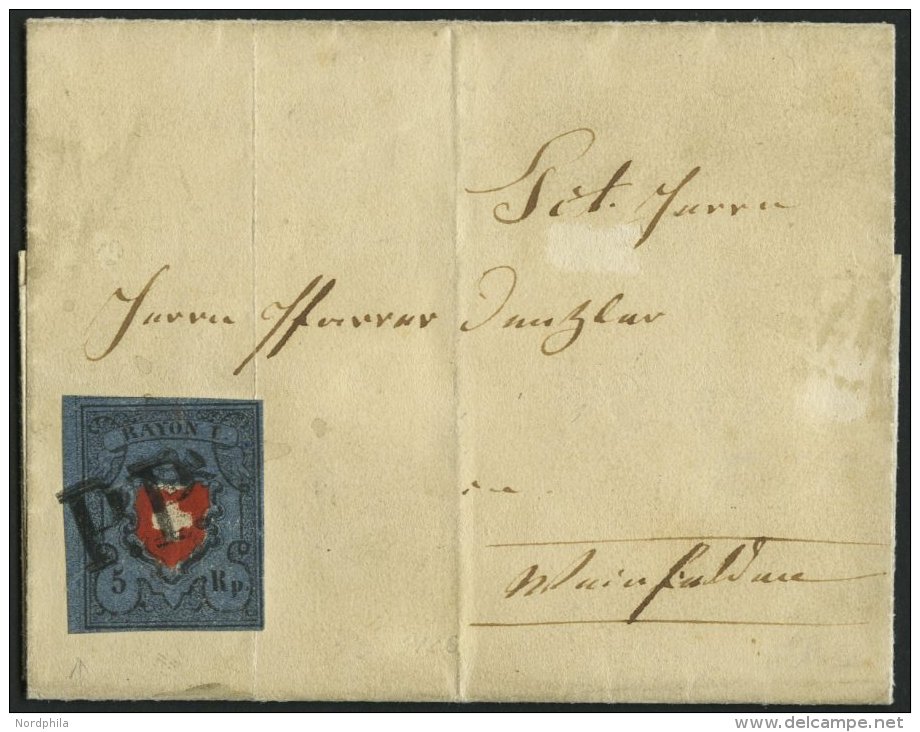 Sct. Herrn
Herrn Pfarrer Denzler
in
Weinfelden
RAYON I.
PP
5 Rp.
Nordphila
www.delcampe.net